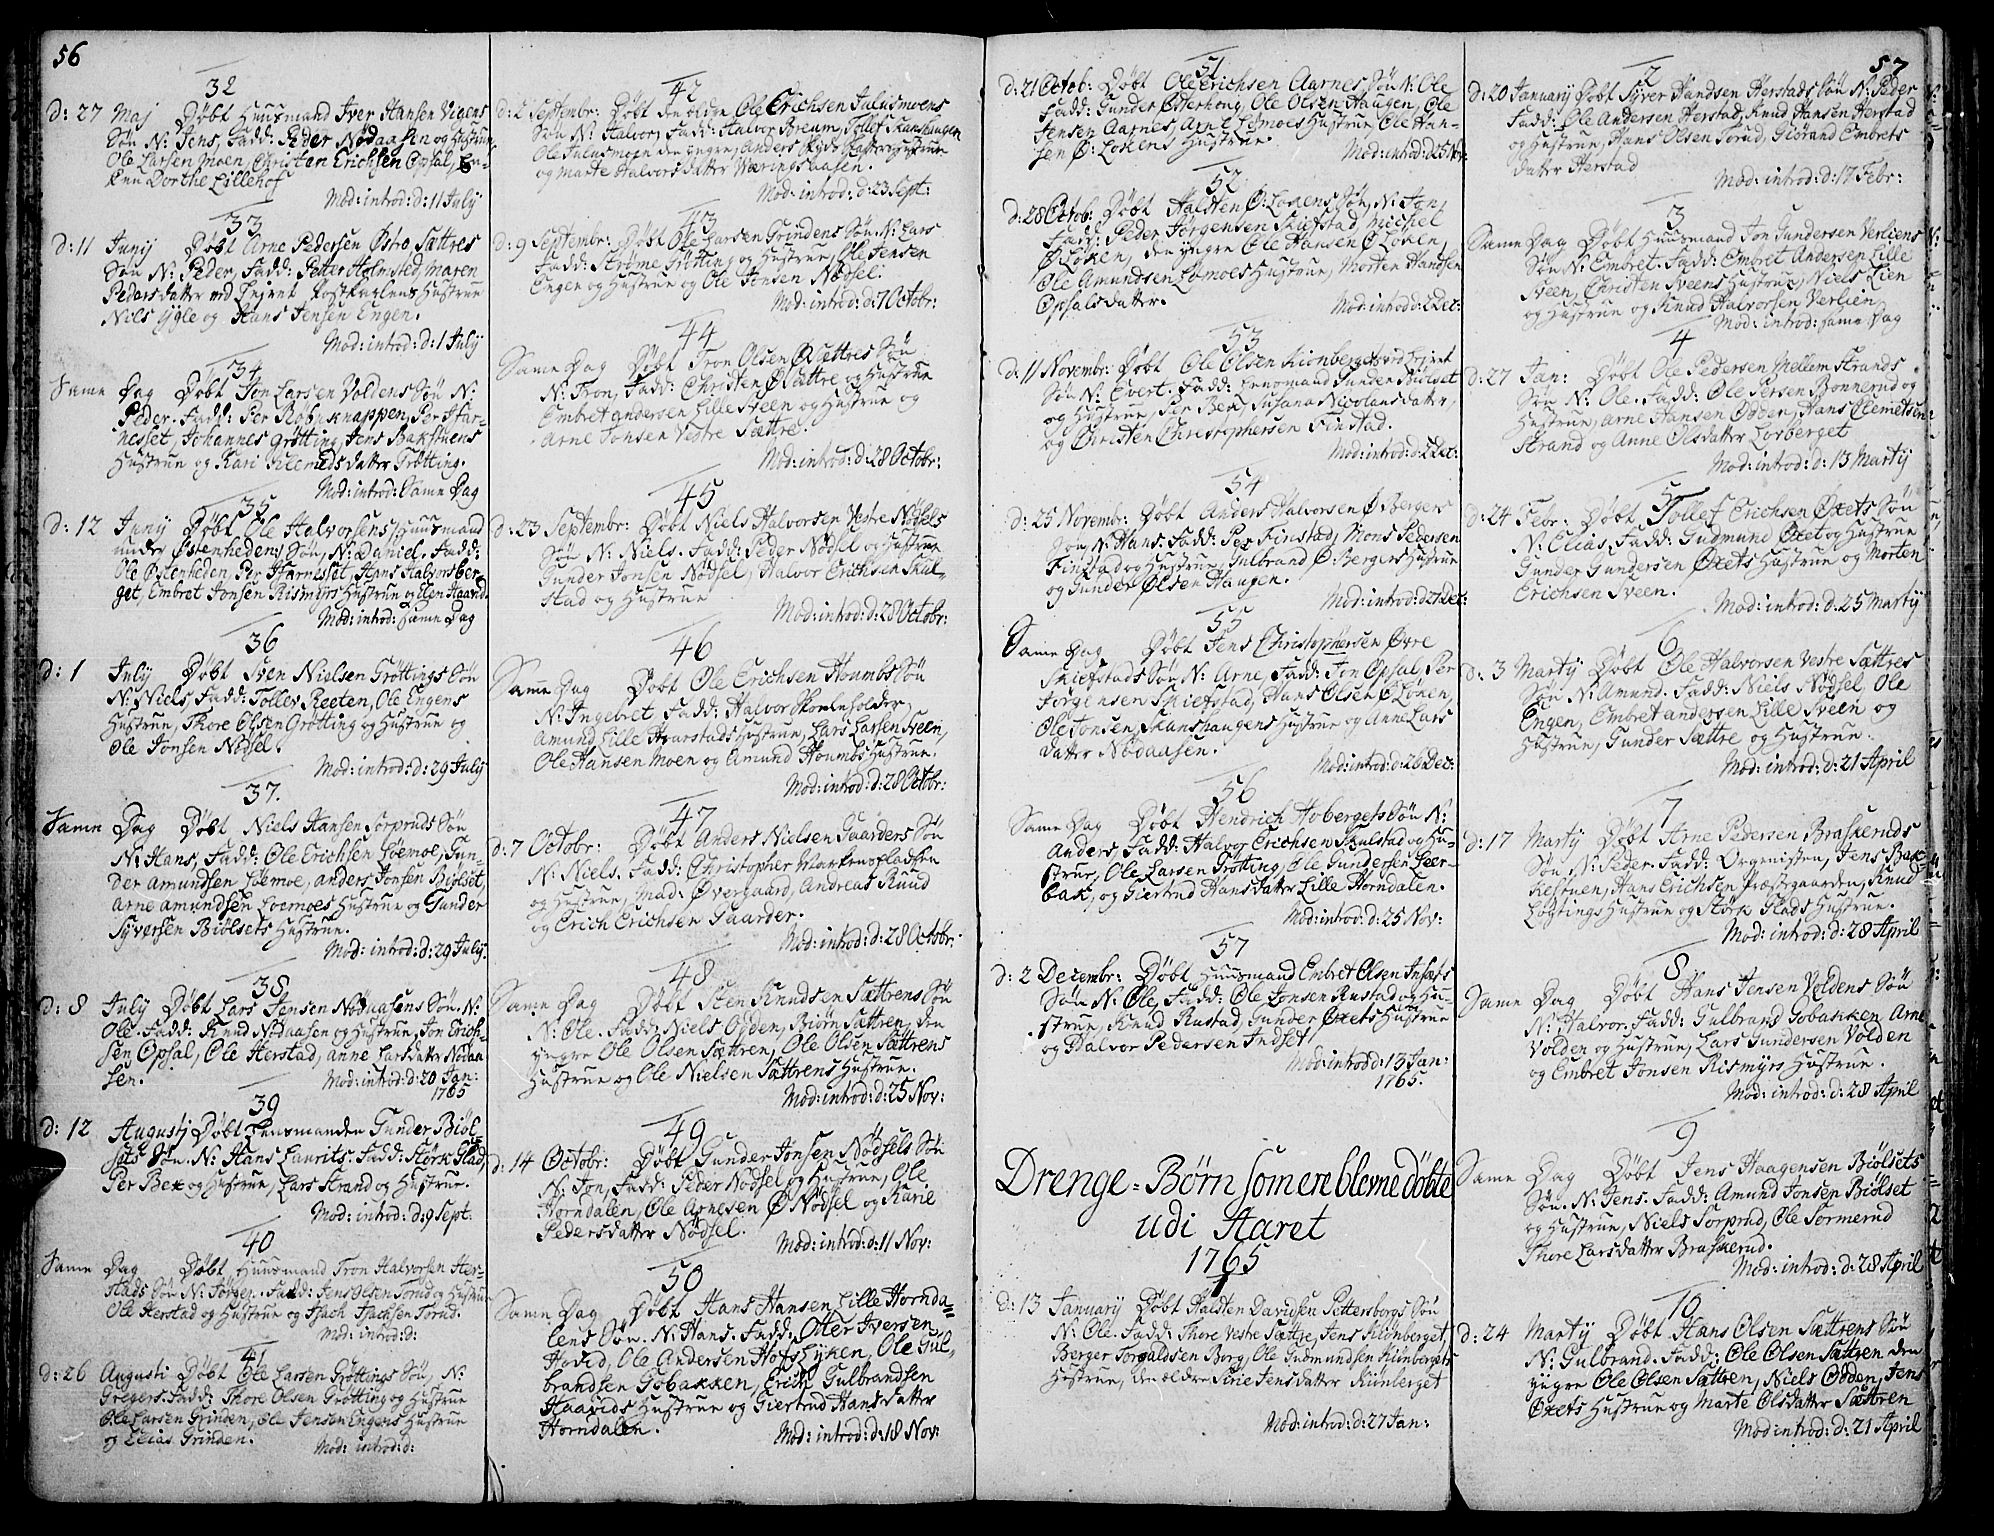 56
32
d: 27 Maj Døbt Huusmand Iver Hansen Vigens
Søn N: Jens, Fadd: Peder Nødaasen og Hustrue
Ole Larsen Moen, Christen Erichsen Opsal, En-
ken Dorthe Lillehof
Mod: introd: d: 11 July
33
d: 11 Junij Døbt Arne Pedersen Østre Sættres
Søn N: Peder, Fadd: Petter Holmsted, Maren
Pedersdatter ved Lejret Hustrue
Niels Ygle og Hans Jensen Engen.
Mod: introd: d: 1 July
34
Same Dag Døbt Jon Larsen Voldens Søn N:
Peder. Fadd: Per Robu knappen, Per Har-
nesset, Johannes Grøtting, Jens Bakstuens
Hustrue og Kari Klemedsdatter Trøtting.
Mod: introd: Same Dag
35
d: 12 Junij Døbt Ole Halvorsens Huusmand
under Østenheden Søn, N: Daniel. Fadd:
Ole Østenheden, Per Harnesset, Hans Halvorsber-
get, Embret Jonsen Rismyrs Hustrue og Elen Haavid
Mod: introd: same Dag
36
d: 1 July Døbt Sven Nielsen Trøttings Søn
N: Niels, Fadd: Tollev Reeten, Ole Engens
Hustrue, Thore Olsen Grøtting og Hustrue og
Ole Jonsen Nødsel.
Mod: introd: d: 29 July
37.
Same Dag Døbt Niels Hansen Sorpruds Søn
N: Hans, Fadd: Ole Erichsen Løemoe, Gun-
der Amundsen Løemoe, Anders Jonsen Biølset,
Arne Amundsen Loemoes Hustrue og Gunder
Syversen Biølsets Hustrue.
Mod: introd: d: 29 July.
38
d: 8 July Døbt Lars Jensen Nødaasens Søn N:
Ole. Fadd: Knud Nødaasen og Hustrue, Jon Erich-
sen Opsal, Ole Herstad, Anne Larsdatter Nødaa
sen.
Mod: introd: d: 20 Jan:
1765
39
d: 12 Augusti Døbt Lensmanden Gunder Biøl-
sets Søn. N: Hans Laurits. Fadd: Størk Glad,
Per Bex og Hustrue, Lars Strand og Hustrue.
Mod: introd: d: 9 Sept:
40
Same Dag Døbt Huusmand Tron Halvorsen Her-
stads Søn N: Jørgen. Fadd: Jens Olsen Torud og Hustrue
Ole Herstad og Hustrue og Isach Isachsen Torud.
Mod: introd: d:
41
d: 26 Augusti Døbt Ole Larsen Trøttings Søn, N:
Gregers. Fadd: Thore Olsen Grøtting og Hustrue
Ole Larsen Grinden, Ole Jensen Engens Hustrue
og Elias Grinden.
Mod: introd: d:
42
d: 2 Septembr: Døbt den olden Ole Erichsen Julusmoens
Søn N: Halvor, Fadd: Halvor Breum, Tollef Skanshaugen
Ole Julusmoen den yngre, Anders Hustrue
og Marte Halvorsdatter Wæringsaasen.
Mod: introd: d: 23 Sept:
43
d: 9 Septembr: Døbt Ole Larsen Grindens Søn N: Lars
Fadd: Strøme Grøtting og Hustrue, Ole Jensen
Engen og Hustrue og Ole Jonsen Nødsel.
Mod: introd: d: 7 Octobr:
44
Same Dag Døbt Tron Olsen Ø Sættres Søn
N: Tron, Fadd: Christen Ø Sættre og Hustrue
Embret Andersen Lille Sveen og Hustrue og
Arne Jonsen Vestre Sættre.
Mod: introd: d: 28 Octobr:
45
d: 23 Septembr: Døbt Niels Halvorsen Vestre Nødsels
Søn N: Niels. Fadd: Peder Nødsel og Hustrue
Gunder Jonsen Nødsel, Halvor Erichsen Skul-
stad og Hustrue
Mod: introd: d: 28 Octobr:
46
Same Dag Døbt Ole Erichsen Houmbs Søn
N: Ingebret. Fadd: Halvor Skoeleholder,
Amund Lille Hvarstads Hustrue, Lars Larsen Sveen,
Ole Hansen Moen og Amund Houmbs Hustrue.
Mod: introd: d: 28 Octobr:
47
d: 7 Octobr: Døbt Anders Nielsen Gaarders Søn
N: Niels. Fadd: Christopher Markenspladsen
og Hustrue, Mad: Øvergaard, Andreas Ruud
og Erich Erichsen Gaarder.
Mod: introd: d: 28 Octobr:
48
Same Dag Døbt Sten Knudsen Sættrens Søn
N: Ole. Fadd: Niels Odden, Biørn Sættren, den
yngre Ole Olsen Sættren, Ole Olsen Sættrens
Hustrue og Ole Nielsen Sættrens Hustrue.
Mod: introd: d: 25 Nov:
49
d: 14 Octobr: Døbt Gunder Jonsen Nødsels Søn
N: Jon, Fadd: Peder Nødsel og Hustrue, Ole
Horndalen, Ole Arnesen Ø Nødsel og Karie
Pedersdatter Nødsel.
Mod: introd: d: 11 Nov:
50
Same Dag Døbt Hans Hansen Lille Hornda-
lens Søn. N: Hans. Fadd: Otter Iversen
Hovid, Ole Andersen Hofs Eyken, Ole Gul-
brandsen Gobakken, Erich Gulbrandsen
Haavids Hustrue og Giertrud Hansdatter
Horndalen.
Mod: introd: d: 18 Nov:
51
d: 21 Octob: Døbt Ole Erichsen Aarnes Søn N: Ole
Fadd: Gunder Østerhong, Ole Olsen Haugen, Ole
Jensen Aarnes, Arne Lømoes Hustrue, Ole Han-
sen Ø: Løkens Hustrue.
Mod: introd: d: 25 Nov:
52
d: 28 Octob: Døbt Halsten Ø: Løkens Søn, N: Jan,
Fadd: Peder Jørgensen Skiefstad, Michel
Ø Løken, den yngre Ole Hansen Ø Løken,
Ole Amundsen Lømoes Hustrue, Morten Handsen
Opsalsdatter.
Mod: introd d: 2 Dec:
53
d: 11 Novembr: Døbt Ole Olsen Kiønberget ved Lejret
Søn N: Evert. Fadd: Lensmand Gunder Biølset
og Hustrue, Per Bex, Susana Nicolausdatter,
og Christen Christophersen Finstad.
Mod: introd: d: 2 Dec:
54
d: 25 Novembr: Døbt Anders Halvorsen Ø Bergers
Søn N: Hans. Fadd: Per Finstad, Mons Pedersen
Finstad og Hustrue, Gulbrand Ø: Bergers Hustrue
og Gunder Olsen Haugen.
Mod: introd: d 27 Dec:
55
Same Dag Døbt Jens Christophersen Øvre
Skiefstads Søn N: Arne. Fadd: Jon Opsal, Per
Jørgensen Skiefstad, Hans Olsen Ø Løken,
Ole Jonsen Skanshaugens Hustrue og Anne Lars
datter Nødaasen.
Mod: introd: d: 26 Dec:
56
Same Dag Døbt Hendrich Hobergets Søn N:
Anders, Fadd: Halvor Erichsen Skulstad og Hu-
strue, Ole Larsen Trøtting, Ole Gundersen Leer-
bak, og Giertrud Hansdatter Lille Horndalen.
Mod: introd: d: 25 Nov:
57
d: 2 Decembr: Døbt Huusmand Embret Olsen Insets
Søn N: Ole, Fadd: Ole Jonsen Rustad og Hu-
strue, Knud Rustad, Gunder Oxets Hustrue
og Halvor Pedersen Indset.
Mod: introd d: 13 Jan:
1765.
Drenge-Børn som ere blevne døbte
udi Aaret
1765
1
d: 13 January Døbt Halsten Davidsen Pettersborgs Søn
N: Ole. Fadd: Thore Vestre Sættre, Jens Kiønberget,
Berger Torgaldsen Borg, Ole Gudmundsen Kiønbergets
Hustrue, den ældre Sirie Jensdatter Kiønberget
Mod: introd: d: 27 Jan:
57
2
d: 20 January Døbt Syver Handsen Herstads Søn N: Peder
Fadd: Ole Andersen Herstad, Knud Hansen Herstad
og Hustrue, Hans Olsen Torud, Giørand Embrets
datter Herstad
Mod: introd: d: 17 Febr:
3
Same Dag Døbt Huusmand Jon Gundersen Verliens
Søn N: Embret. Fadd: Embret Andersen Lille
Sveen, Christen Sveens Hustrue, Niels Lien
og Hustrue og Knud Halvorsen Verlien,
Mod: introd: same Dag
4
d: 27 Jan: Døbt Ole Pedersen Mellem Strands
Søn N: Ole. Fadd: Ole Persen Bonnerud og
Hustrue, Arne Hansen Odden, Hans Clemetsen
Strand og Anne Olsdatter Losberget
Mod: introd: d: 13 Martij
5
d: 24 Febr: Døbt Tollef Erichsen Oxets Søn
N: Elias, Fadd: Gudmund Oxet og Hustrue
Gunder Gundersen Oxets Hustrue og Morten
Erichsen Sveen.
Mod: introd: d: 25 Martij
6
d: 3 Martij Døbt Ole Halvorsen Vestre Sættres
Søn N: Amund. Fadd: Niels Nødsel, Ole
Engen, Embret Andersen Lille Sveen og
Hustrue, Gunder Sættre og Hustrue.
Mod: introd: d: 21 April
7
d: 17 Martij Døbt Arne Pedersen Braskeruds
Søn, N: Peder. Fadd: Orgenisten, Jens Bak-
kestuen, Hans Erichsen Præstgaarden, Knud
Løgtings Hustrue og Størk Glads Hustrue.
Mod: introd: d: 28 April
8
Same Dag Døbt Hans Jensen Voldens Søn
N: Halvor. Fadd: Gulbrand Gobakken, Arne
Volden og Hustrue, Lars Gundersen Volden
og Embret Jonsen Rismyrs Hustrue.
Mod: introd: d: 28 April
9
Same Dag Døbt Jens Haagensen Biølsets
Søn. N: Jens. Fadd: Amund Jonsen Biølset
og Hustrue, Niels Sorprud, Ole Sormerud
Thore Larsdatter Braskerud.
Mod: introd: d: 28 April
10
d: 24 Martij Døbt Hans Olsen Sættrens Søn
N: Gulbrand. Fadd: Ole Olsen Sættren den
yngre Ole Olsen Sættren, Niels Odden, Jens
Oxets Hustrue og Marte Olsdatter Sættren
Mod introd: d: 21 April